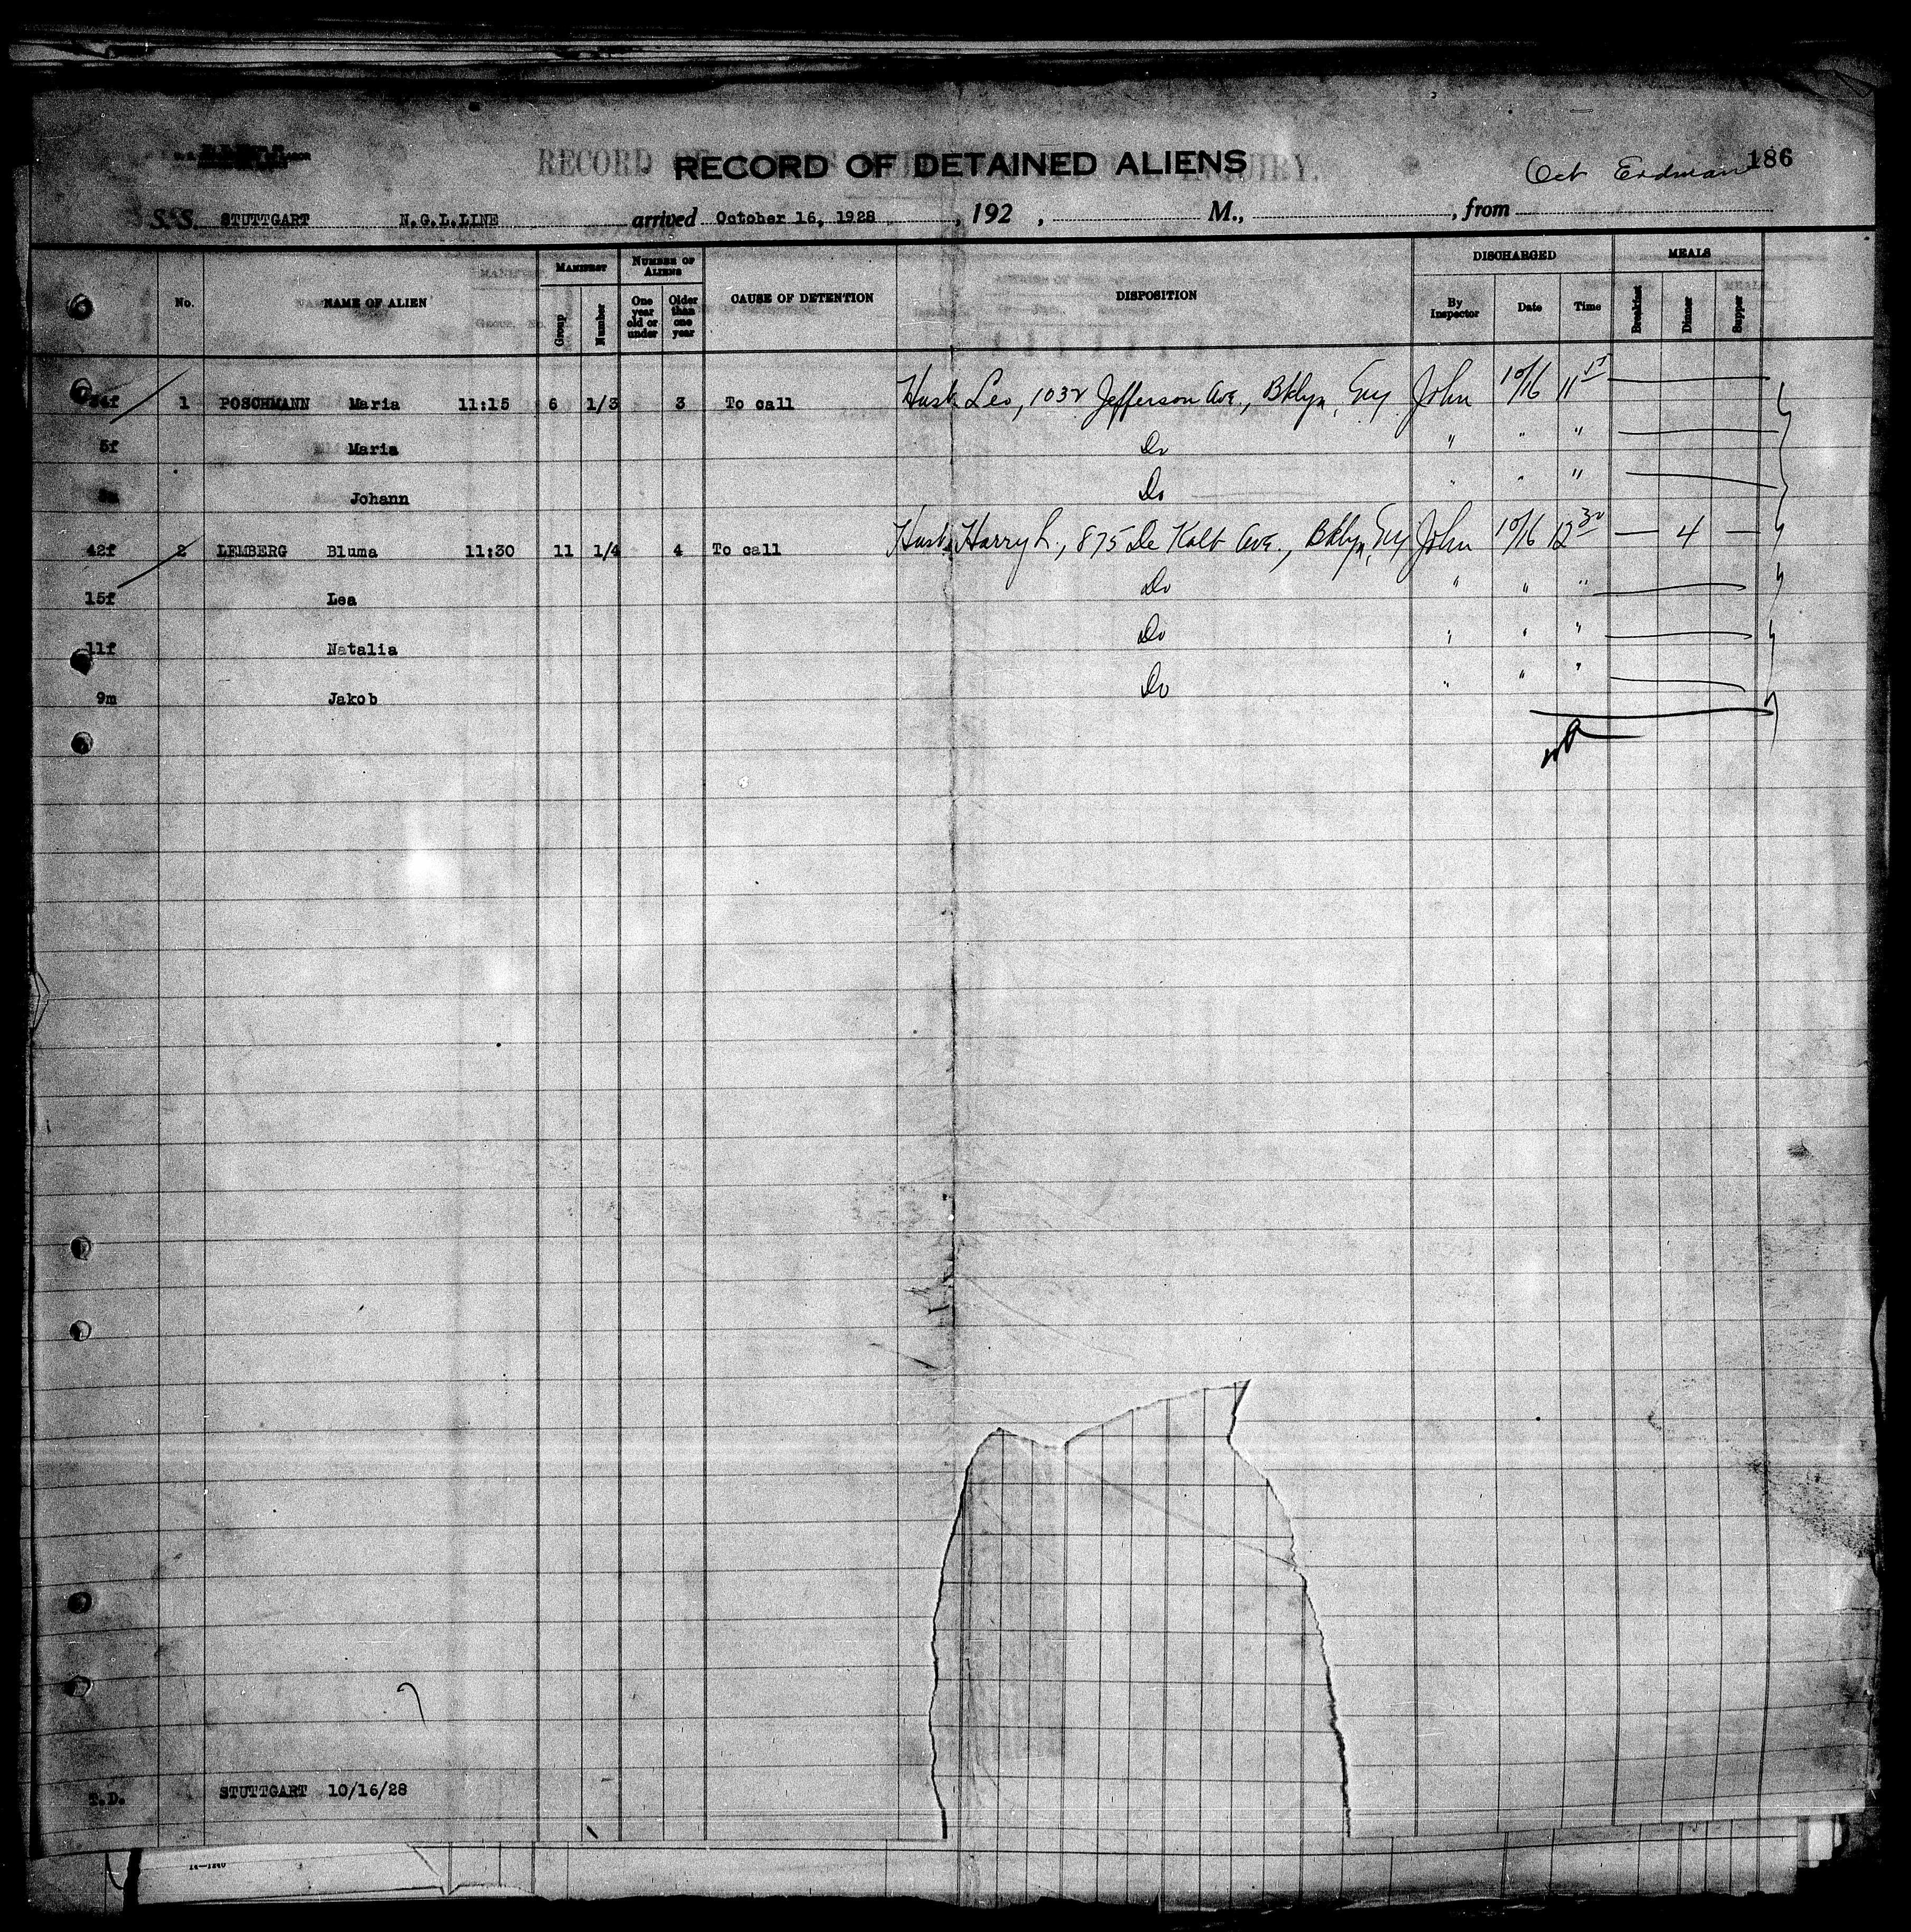 RECORD OF DETAINED ALIENS
186
Oct Erdman
S.S. STUTTGART N.G.L.LINE arrived October 16, 1928, 192 , M., , from
No. NAME OF ALIEN MANIFEST Group Number NUMBER OF ALIENS One year old or under Older than one year CAUSE OF DETENTION DISPOSITION DISCHARGED By Inspector Date Time MEALS Breakfast Dinner Supper
1 POSCHMANN Maria 11:15 6 1/3 3 To call Husb Leo, 1032 Jefferson Ave., Bklyn, Ny John 10/16 11
5f Maria Do " " "
Johann Do " " "
42f 2 LEMBERG Bluma 11:30 11 1/4 4 To call Husb Harry L., 875 De Kalb Ave., Bklyn, Ny John 10/16 12 30 — 4 —
15f Lea Do " " "
11f Natalia Do " " "
9m Jakob Do " " "
T.D. STUTTGART 10/16/28